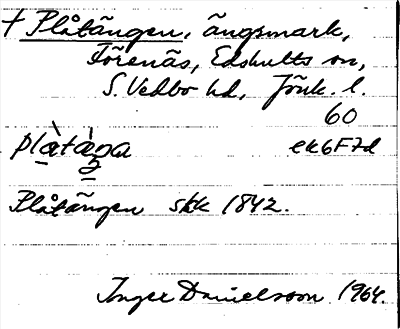 † Plåtängen, ängsmark,
Förenäs, Edshults sn,
S. Vedbo hd, Jönk. l.
60
plàtàga ek6F7d
2
Plåtängen skk 1842.
Inger Danielsson 1964.